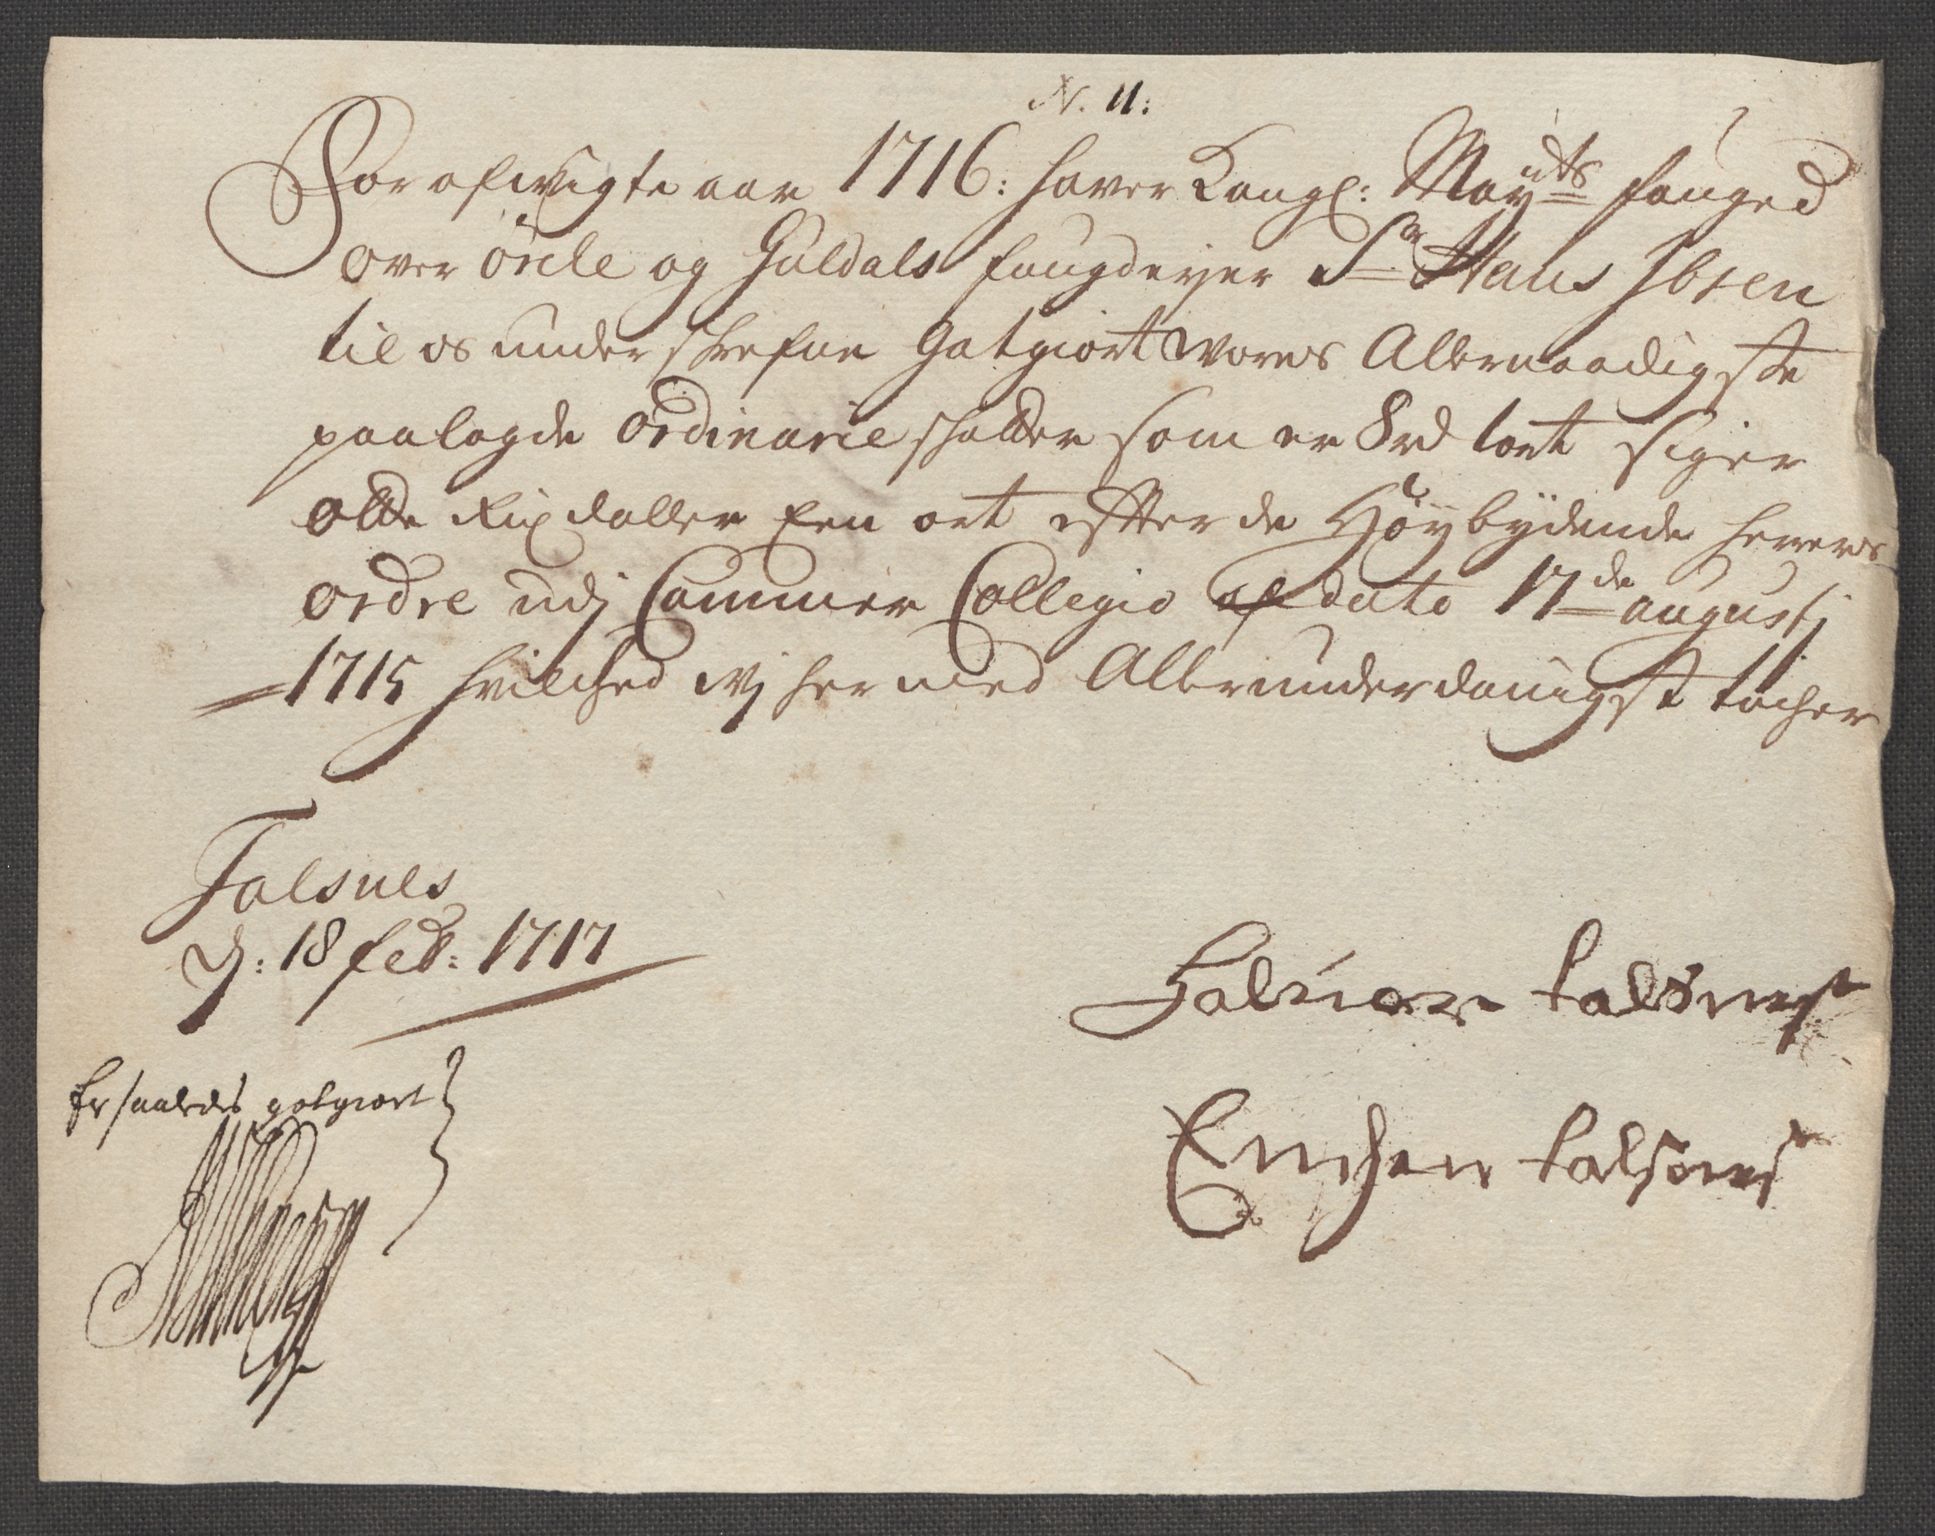 N. 11:
For afvigte aar 1716: haver Kongl: Mayts fouged
over örcle og Guldals fougderjer Sr Hans Ibsen
til os underskrefne Gotgiort vores Allernaadigste
paalagde ordinarie skatter som er 8 rd 1 ort siger
otte Rixdaller Een ort efter de Höybydende herrers
ordre udj Cammer Collegio af dato 17de augustj
1715 hvilched vj hermed Allerunderdanigst tacher
Folsnes
D: 18 feb: 1717
Halvor folsnes
Erichen folsnes
Er saaledes gotgiort